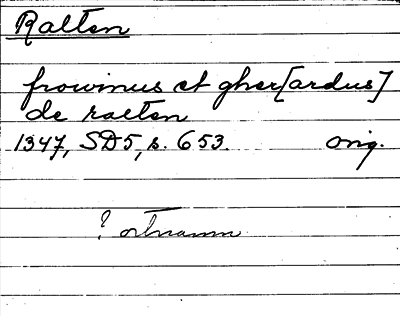 Ralten
frowinus et gher[ardus]
de raeten
1347, SD5, s. 653. orig.
? ortnamn